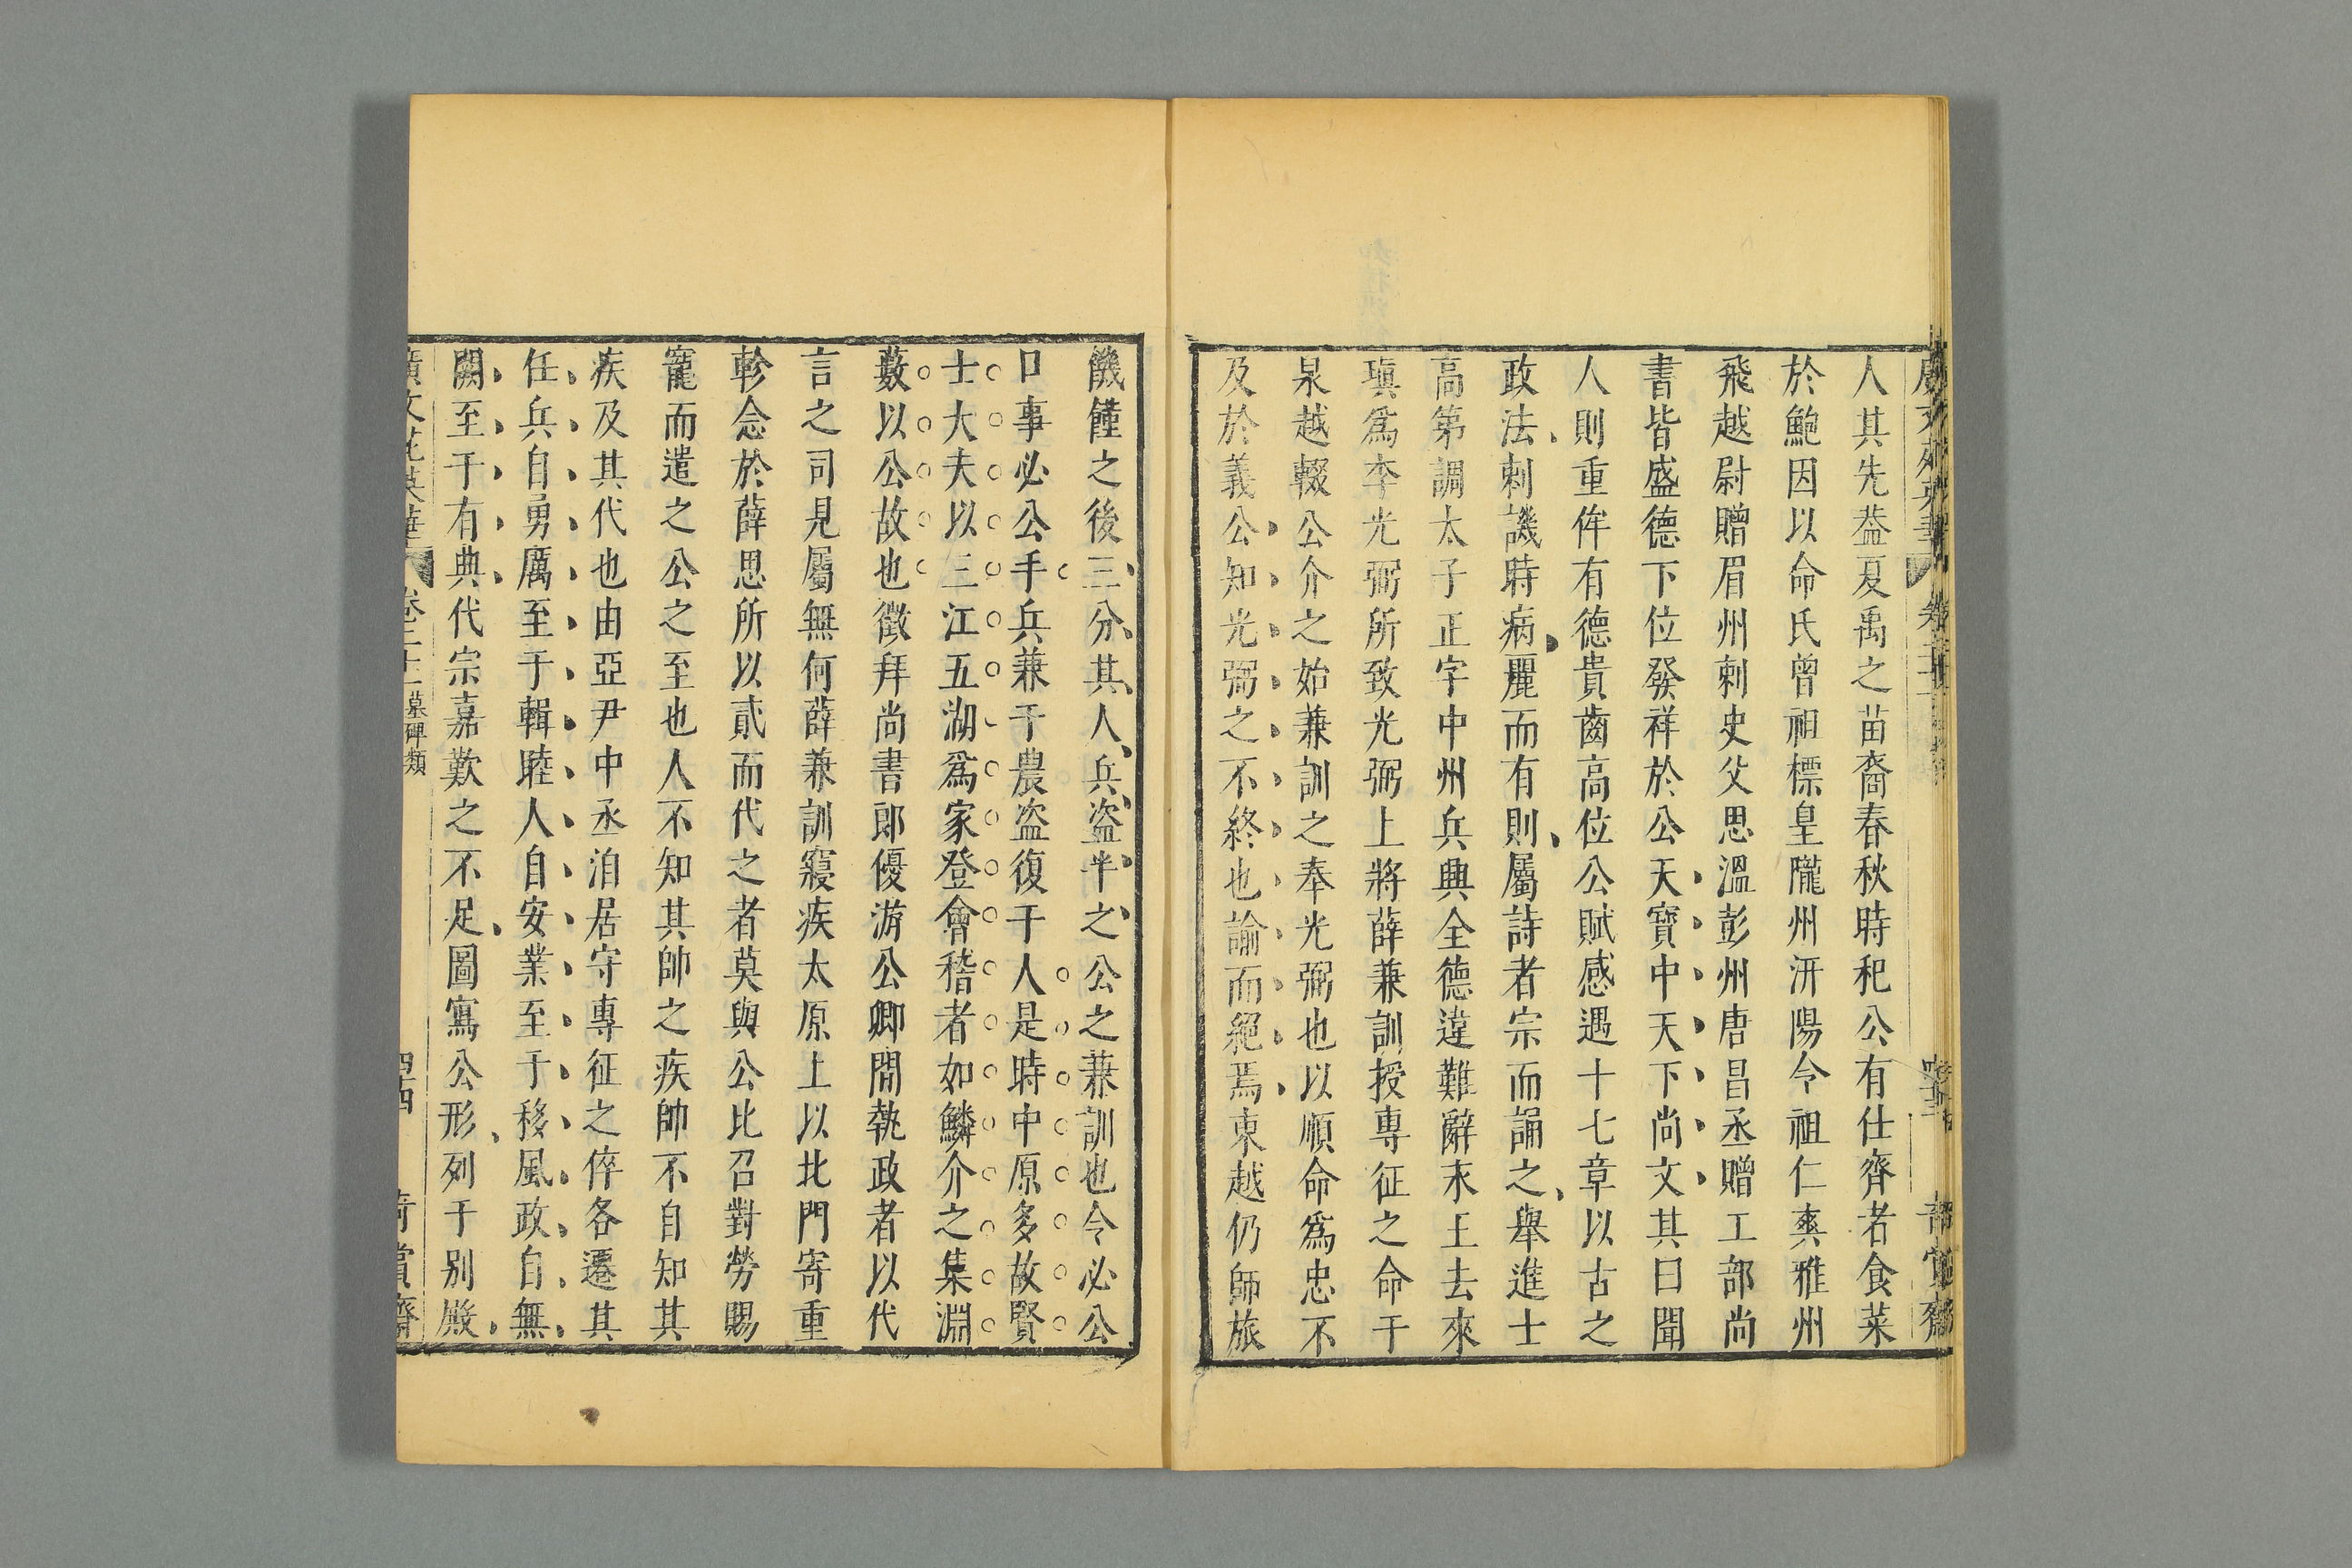 人其先葢夏禹之苗裔春秋時杞公有仕齊者食菜
於鮑因以命氏曾祖標皇隴州汧陽令祖仁爽雅州
飛越尉贈眉州刺史父思溫彭州唐昌丞贈工部尚
書皆盛德下位發祥於公天寶中天下尚文其曰聞
人則重侔有德貴齒高位公賦感遇十七章以古之
政法刺譏時病麗而有則屬詩者宗而誦之舉進士
高第調太子正字中州兵興全德違難辭末王去來
瑱爲李光弼所致光弼上將薛兼訓授專征之命于
泉越輟公介之始兼訓之奉光弼也以順命爲忠不
及於義公知光弼之不終也諭而絕焉東越仍師旅
饑饉之後三分其人兵盗半之公之兼訓也令必公
口事必公手兵兼于農盗復于人是時中原多故賢
士大夫以三江五湖爲家登會稽者如鱗介之集淵
藪以公故也徵拜尚書郎優游公卿間執政者以代
言之司見屬無何薛兼訓寢疾太原上以北門寄重
軫念於薛思所以貳而代之者莫與公比召對勞賜
寵而遣之公之至也人不知其帥之疾帥不自知其
疾及其代也由亞尹中丞洎居守專征之倅各遷其
任兵自勇厲至于輯睦人自安業至于移風政自無
闕至于有典代宗嘉歎之不足圖寫公形列于別殿
廣文苑英華 卷二十 墓碑類 四四 奇賞齋